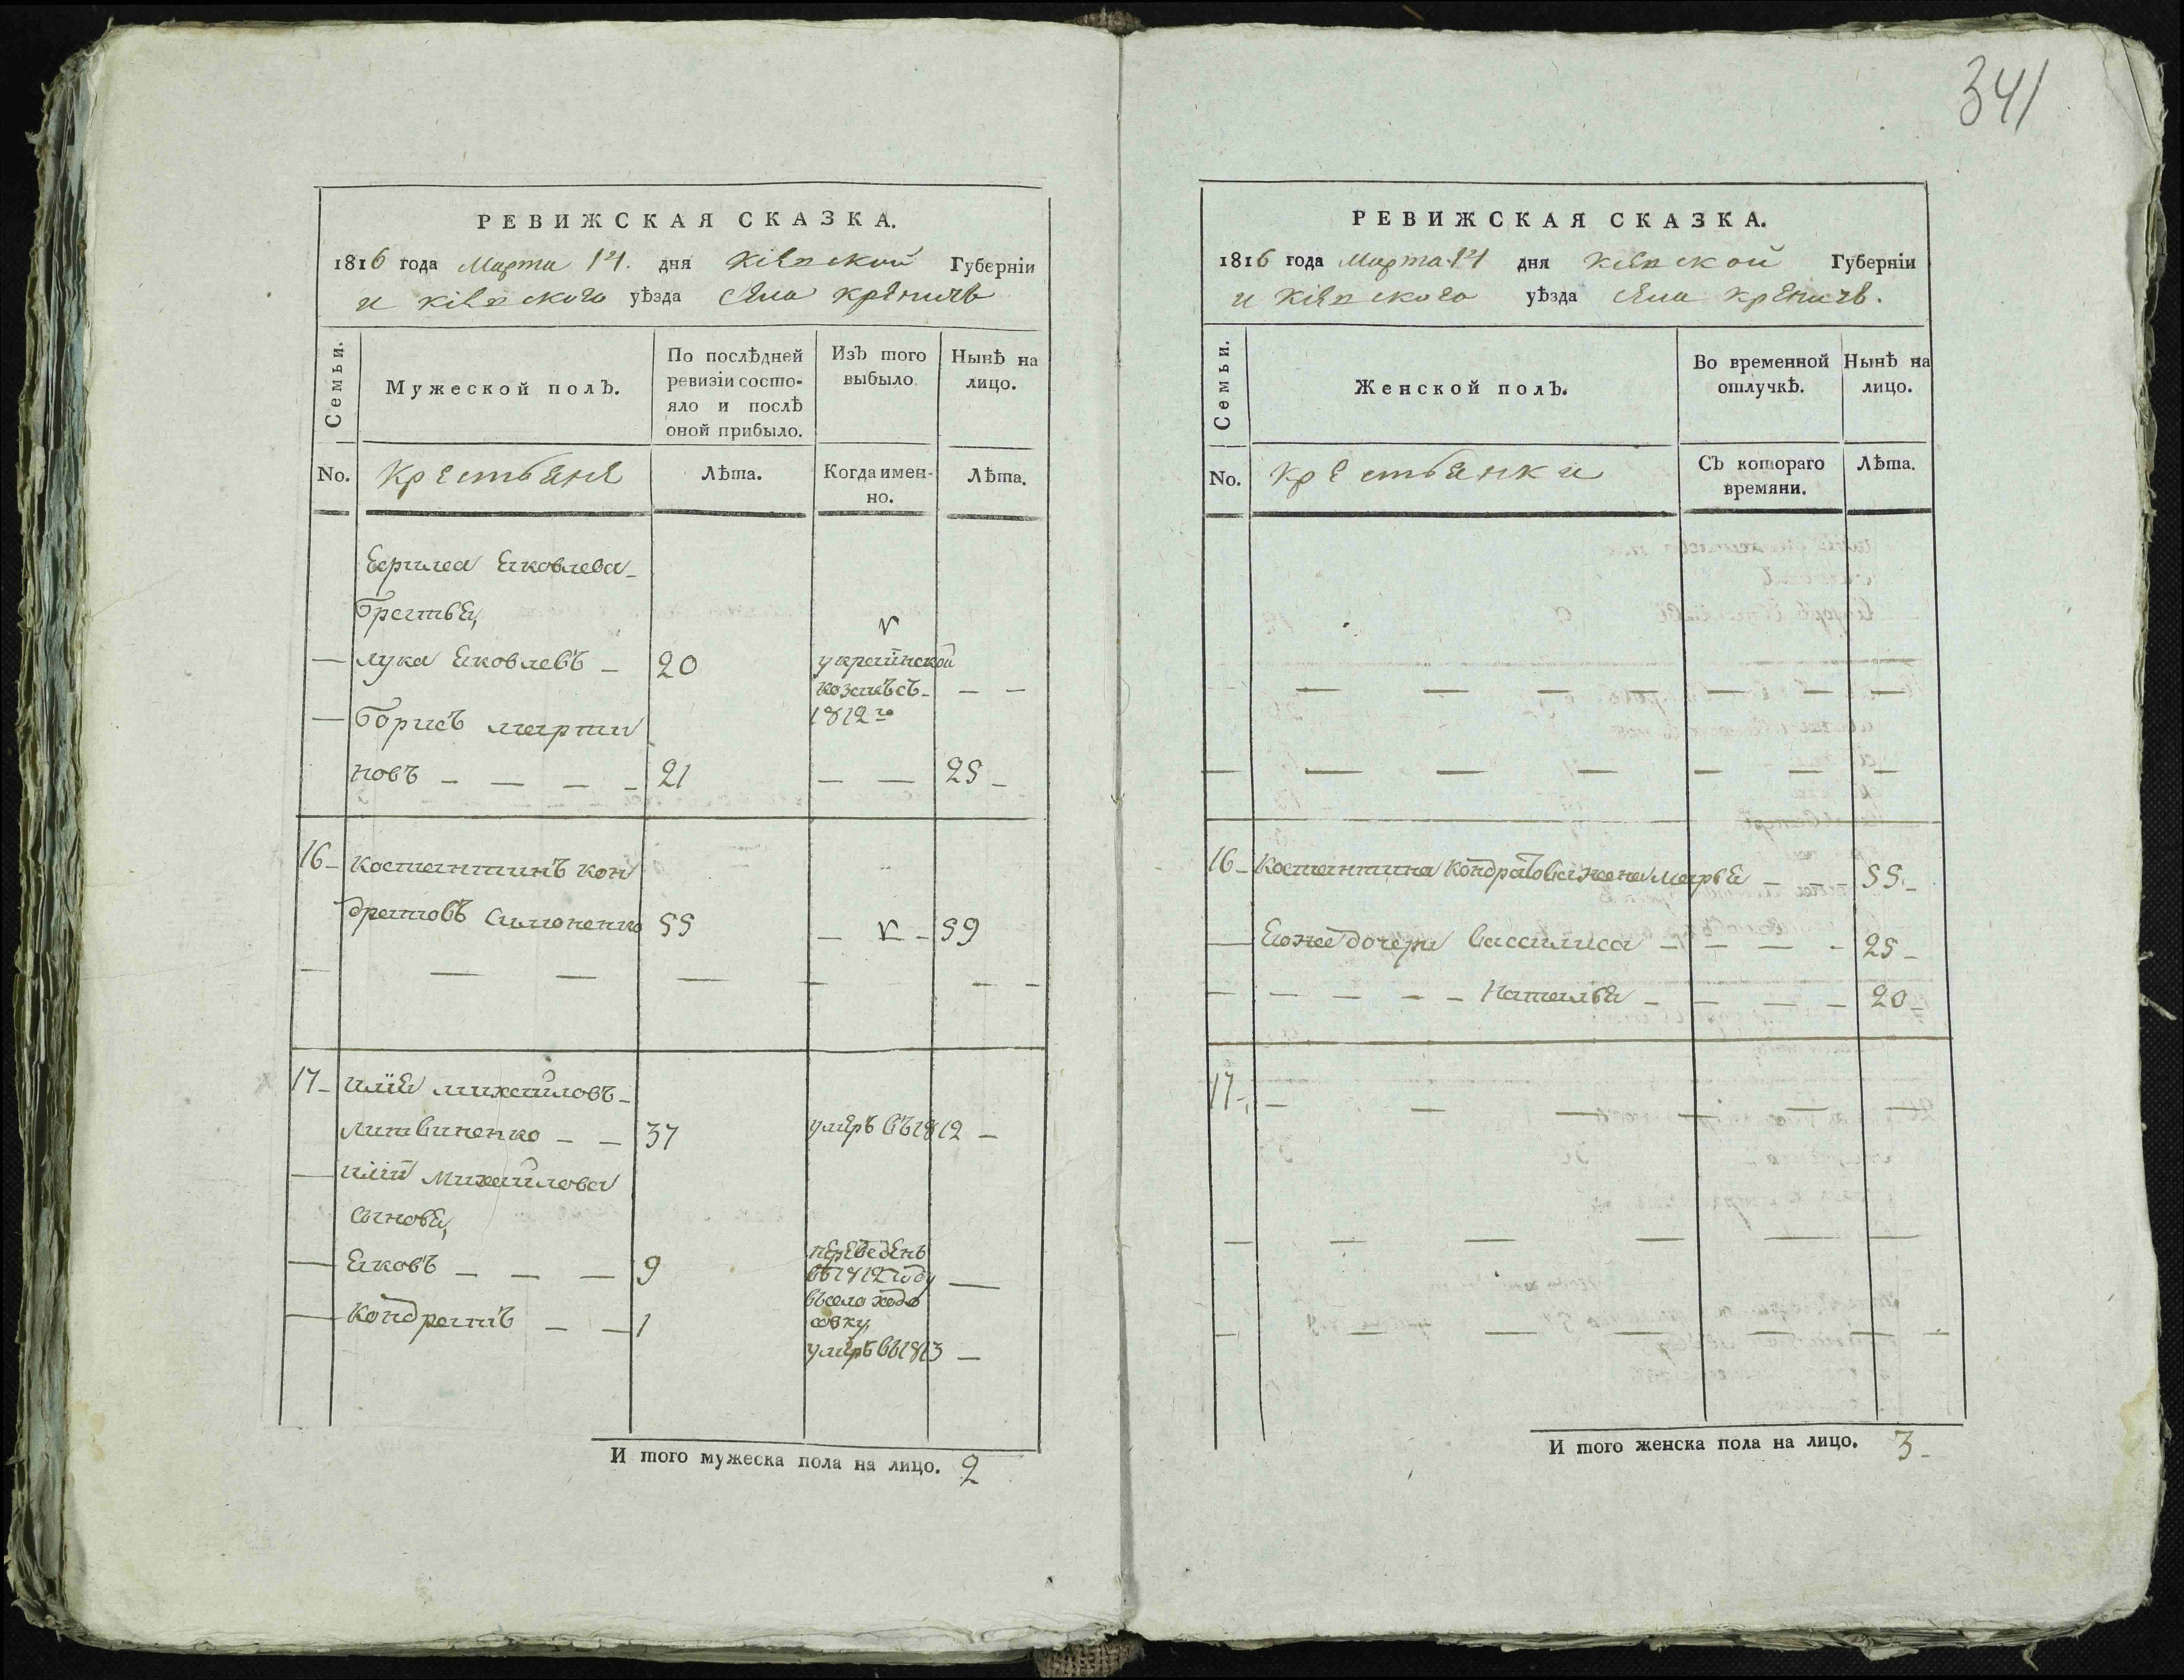 341
РЕВИЖСКАЯ СКАЗКА.
1816 года Марта 14. дня Кіевской Губерніи
и Кіевского уѣзда села Креничь
Семьи.
Мужеской полъ.
По послѣдней ревизіи состо-
яло и послѣ
оной прибыло.
Изъ того
выбыло
Нынѣ на
лицо.
No. Крестьяне Лѣта. Когда имен-
но. Лѣта.
Яковлева
братья,
— лука Яковлевъ — 20 украинской
козакъ съ — — —
1812го
— борисъ марти
новъ — — — — 21 — — 25 —
16 — костантинъ кон
дратовъ Симоненко 55 — — 59
17 — илія михаиловъ —
литвиненко — — 37 умеръ въ 1812 —
— иліи Михаилова
сыновя,
— яковъ — — — 9 переведенъ
въ 1812 году —
въ село ходо
совку,
— Кондратъ — — 1 умеръ въ 1813 —
И того мужеска пола на лицо. 2
РЕВИЖСКАЯ СКАЗКА.
1816 года Марта 14 дня Кіевской Губерніи
и Кіевского уѣзда села Креничь.
Семьи.
Женской полъ.
Во временной
отлучкѣ.
Нынѣ на
лицо.
No. Крестьянки Съ котораго
времяни. Лѣта.
16 — Костантина Кондратова жена марья — — 55 —
— Ево же дочери василиса — — — — 25 —
— — — — — Наталья — — — — 20 —
17 —
И того женска пола на лицо. 3 —